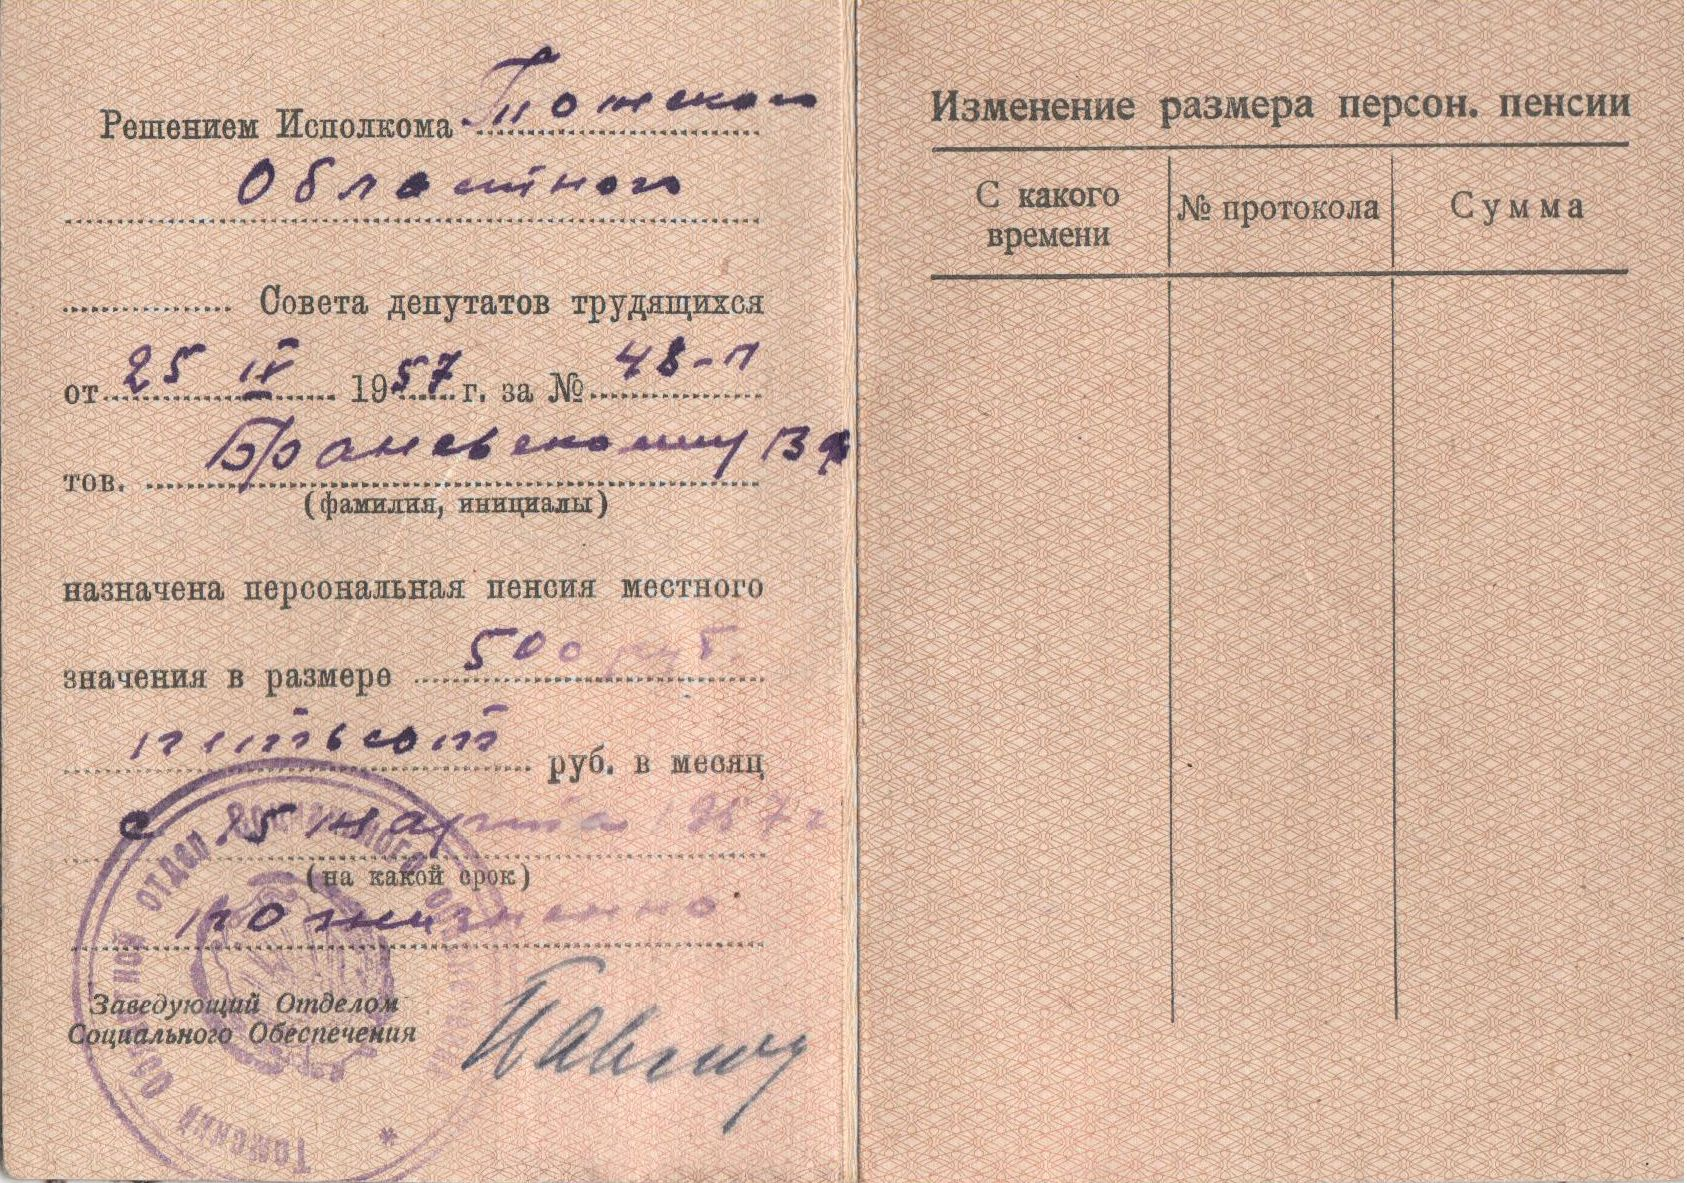 Решением Исполкома Томского
Областного
Совета депутатов трудящихся
от 25 IV 1957 г. за № 48-п
тов. Браневскому В
(фамилия, инициалы)
назначена персональная пенсия местного
значения в размере 500 руб.
пятьсот руб. в месяц
с 25 марта 1957 г
(на какой срок)
пожизненно
Заведующий Отделом
Социального Обеспечения
Томский Областной отдел социального обеспечения
Изменение размера персон. пенсии
С какого времени
№ протокола
Сумма